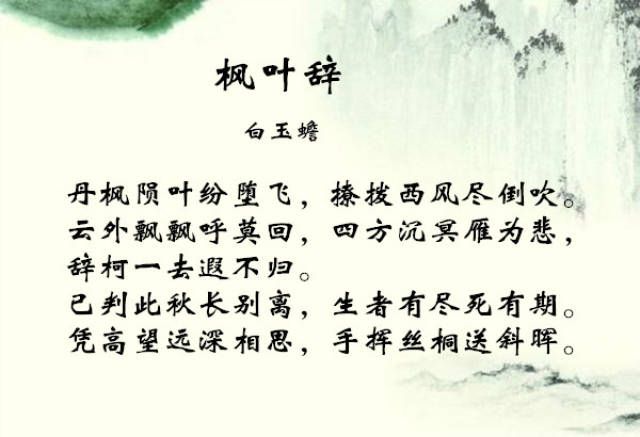 枫叶辞
白玉蟾
丹枫陨叶纷堕飞，撩拨西风尽倒吹。
云外飘飘呼莫回，四方沉冥雁为悲，
辞柯一去遐不归。
已判此秋长别离，生者有尽死有期。
凭高望远深相思，手挥丝桐送斜晖。